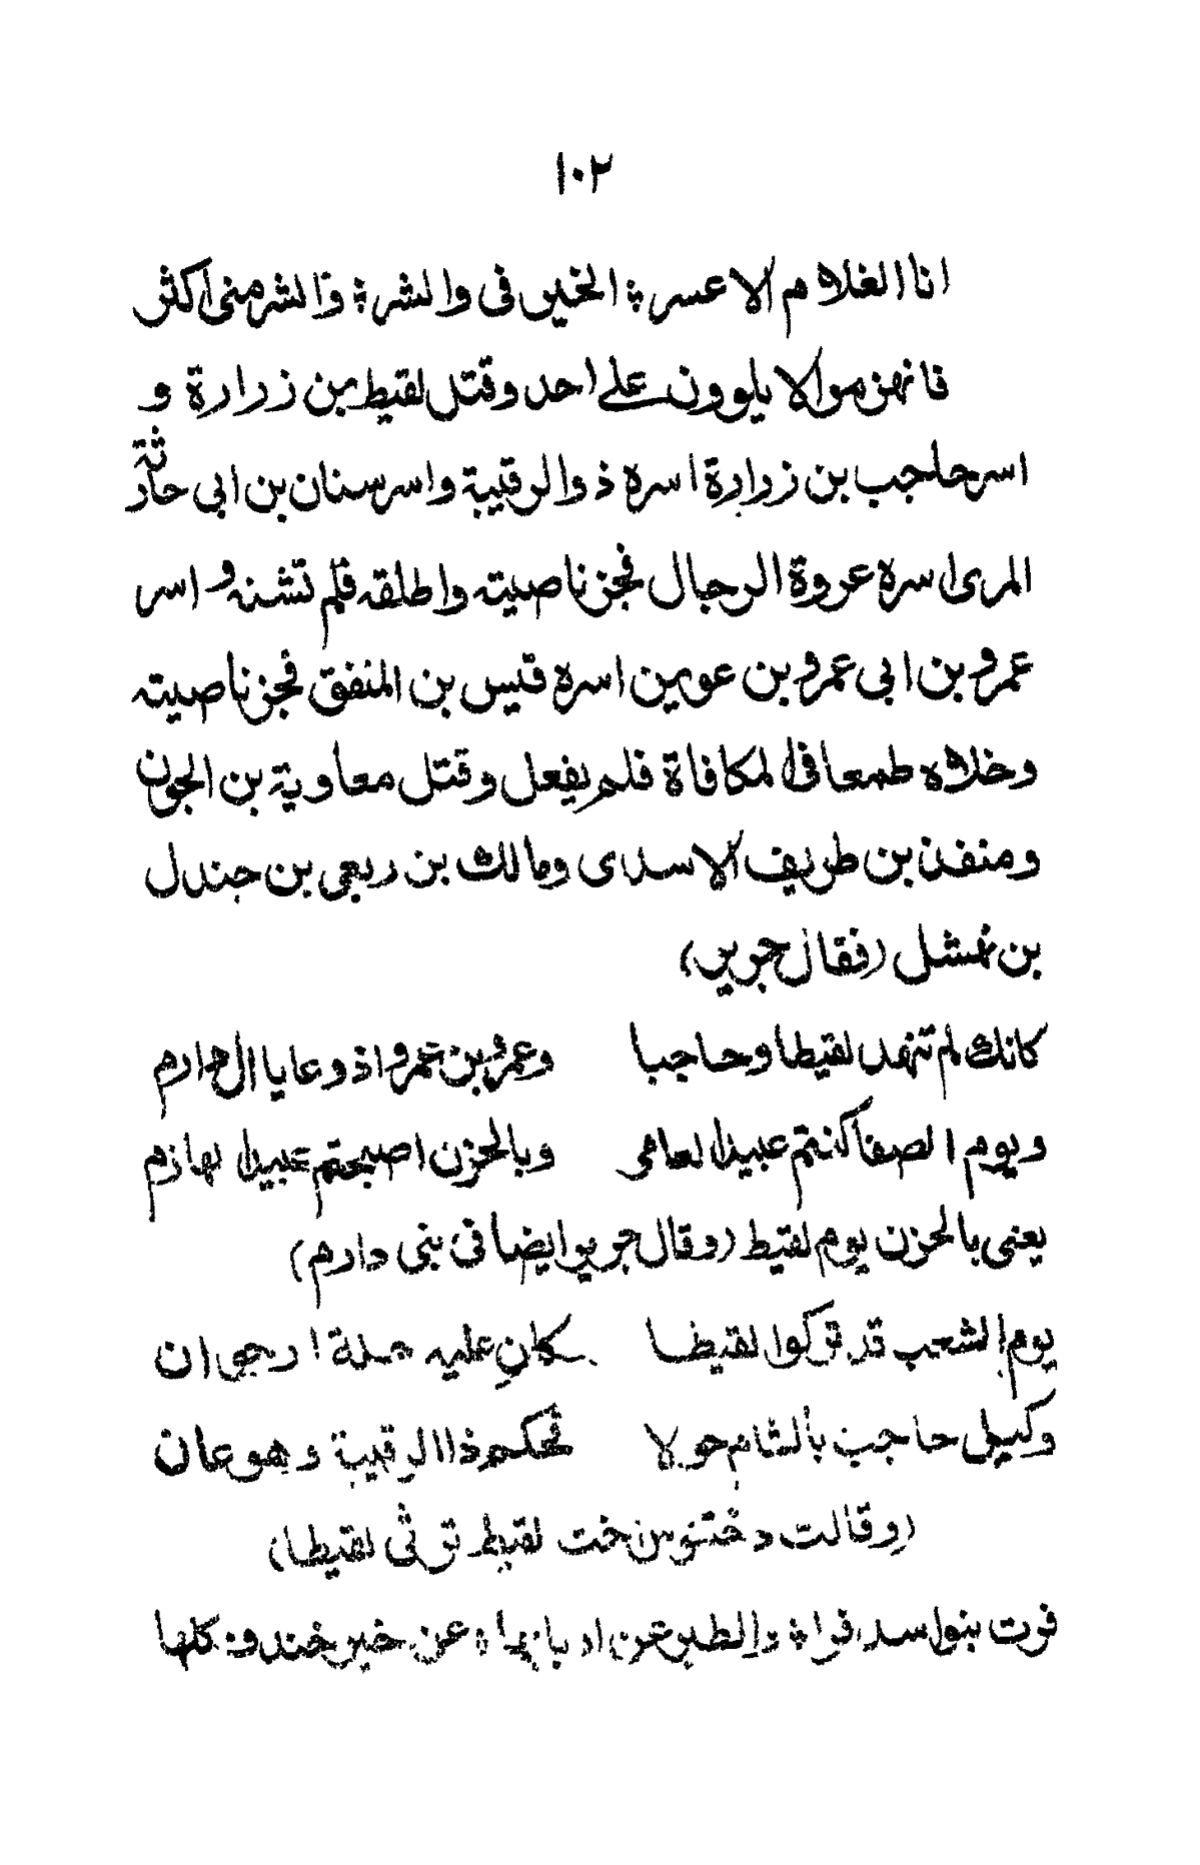 ١٠٢
انا الغلام الاعسر ؛ الخير في والشر ؛ والشر مني اكثر
فانهزموا لا يلوون على احد وقتل لقيط بن زرارة و
اسر حاجب بن زرارة اسره ذوالرقيبة واسر سنان بن ابي حارثة
المري اسره عروة الرحال فجز ناصيته واطلقه فلم تشنه واسر
عمرو بن ابي عمرو بن عوين اسره قيس بن المنفق فجز ناصيته
وخلاه طمعا في المكافاة فلم يفعل وقتل معاوية بن الجون
ومنفذ بن طريف الاسدي ومالك بن ربعي بن جندل
بن نهشل (فقال جرير)
كانك لم تشهد لقيطا وحاجبا وعمرو بن عمرو اذ دعا يا ال دارم
ويوم الصفا كنتم عبيدا لعامر وبالحزن اصبحتم عبيد لهازم
يعني بالحزن يوم لقيط (وقال جرير ايضا في بني دارم)
يوم الشعب قد تركوا لقيطا كان عليه حلة ارجوان
وكبل حاجب بالشام حولا فحكم ذا الرقيبة وهو عان
(وقالت دختنوس اخت لقيط ترثي لقيطا)
فرت بنو اسد فرا ؛ والطير عن اربابها ؛ عن خير خندف كلها